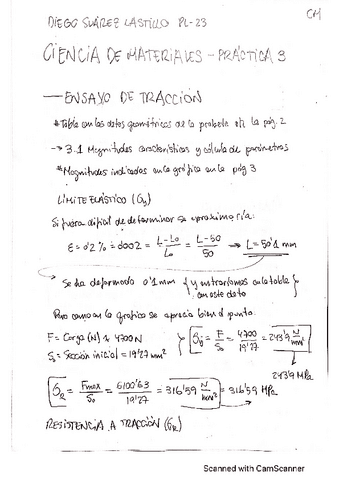 DIEGO SUÁREZ LASTILLO PL-23
CM
CIENCIA DE MATERIALES - PRÁCTICA 3
— ENSAYO DE TRACCIÓN
* Tabla con los datos geométricos de la probeta en la pág. 2
→ 3.1 Magnitudes características y cálculo de parámetros
* Magnitudes indicadas en la gráfica en la pág 3
LÍMITE ELÁSTICO (σy)
Si fuera difícil de determinar se aproximaría:
ε = 0'2 % = 0'002 = L-L₀/L₀ = L-50/50 → L = 50'1 mm
→ Se ha deformado 0'1 mm { y entraríamos en la tabla con este dato }
Pero como en la gráfica se aprecia bien el punto:
F = Carga (N) ≈ 4700N
S₀ = Sección inicial = 19'27 mm²
} σy = F/S₀ = 4700/19'27 = 243'9 N/mm²
243'9 MPa
σR = Fmax/S₀ = 6100'63/19'27 = 316'59 N/mm² = 316'59 MPa
RESISTENCIA A TRACCIÓN (σR)
Scanned with CamScanner